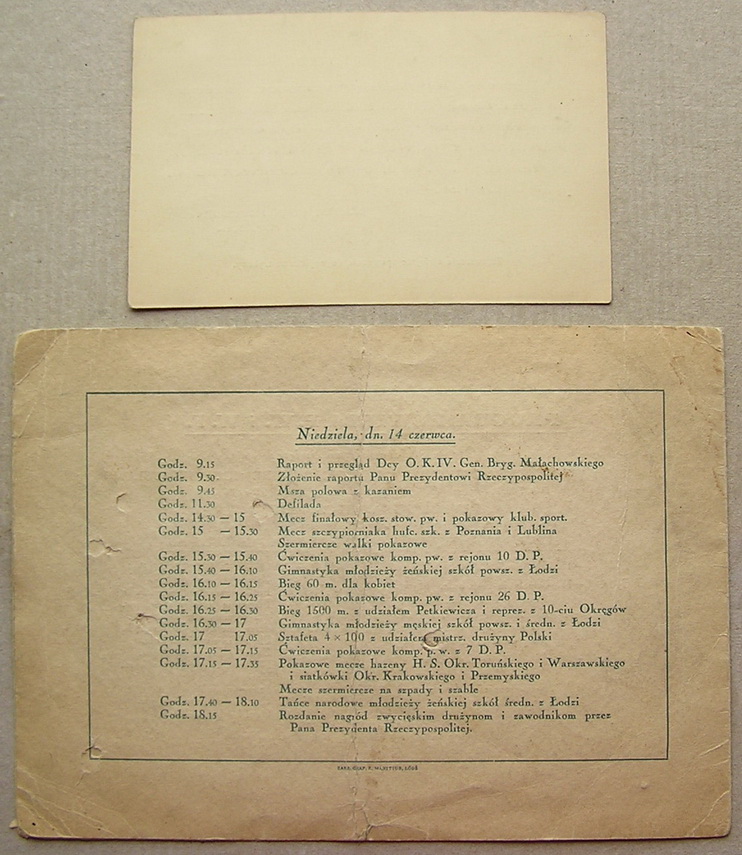 Niedziela, dn. 14 czerwca.
Godz. 9.15 Raport i przegląd Dcy O. K. IV. Gen. Bryg. Małachowskiego
Godz. 9.30 Złożenie raportu Panu Prezydentowi Rzeczypospolitej
Godz. 9.45 Msza polowa z kazaniem
Godz. 11.30 Defilada
Godz. 14.30 — 15 Mecz finałowy kosz. stow. pw. i pokazowy klub. sport.
Godz. 15 — 15.30 Mecz szczypiorniaka hufc. szk. z Poznania i Lublina
Szermiercze walki pokazowe
Godz. 15.30 — 15.40 Ćwiczenia pokazowe komp. pw. z rejonu 10 D. P.
Godz. 15.40 — 16.10 Gimnastyka młodzieży żeńskiej szkół powsz. z Łodzi
Godz. 16.10 — 16.15 Bieg 60 m. dla kobiet
Godz. 16.15 — 16.25 Ćwiczenia pokazowe komp. pw. z rejonu 26 D. P.
Godz. 16.25 — 16.30 Bieg 1500 m. z udziałem Petkiewicza i reprez. z 10-ciu Okręgów
Godz. 16.30 — 17 Gimnastyka młodzieży męskiej szkół powsz. i średn. z Łodzi
Godz. 17 17.05 Sztafeta 4 × 100 z udziałem mistrz. drużyny Polski
Godz. 17.05 — 17.15 Ćwiczenia pokazowe komp. p. w. z 7 D. P.
Godz. 17.15 — 17.35 Pokazowe mecze hazeny H. S. Okr. Toruńskiego i Warszawskiego
i siatkówki Okr. Krakowskiego i Przemyskiego
Mecze szermiercze na szpady i szable
Godz. 17.40 — 18.10 Tańce narodowe młodzieży żeńskiej szkół średn. z Łodzi
Godz. 18.15 Rozdanie nagród zwycięskim drużynom i zawodnikom przez
Pana Prezydenta Rzeczypospolitej.
ŁÓDŹ